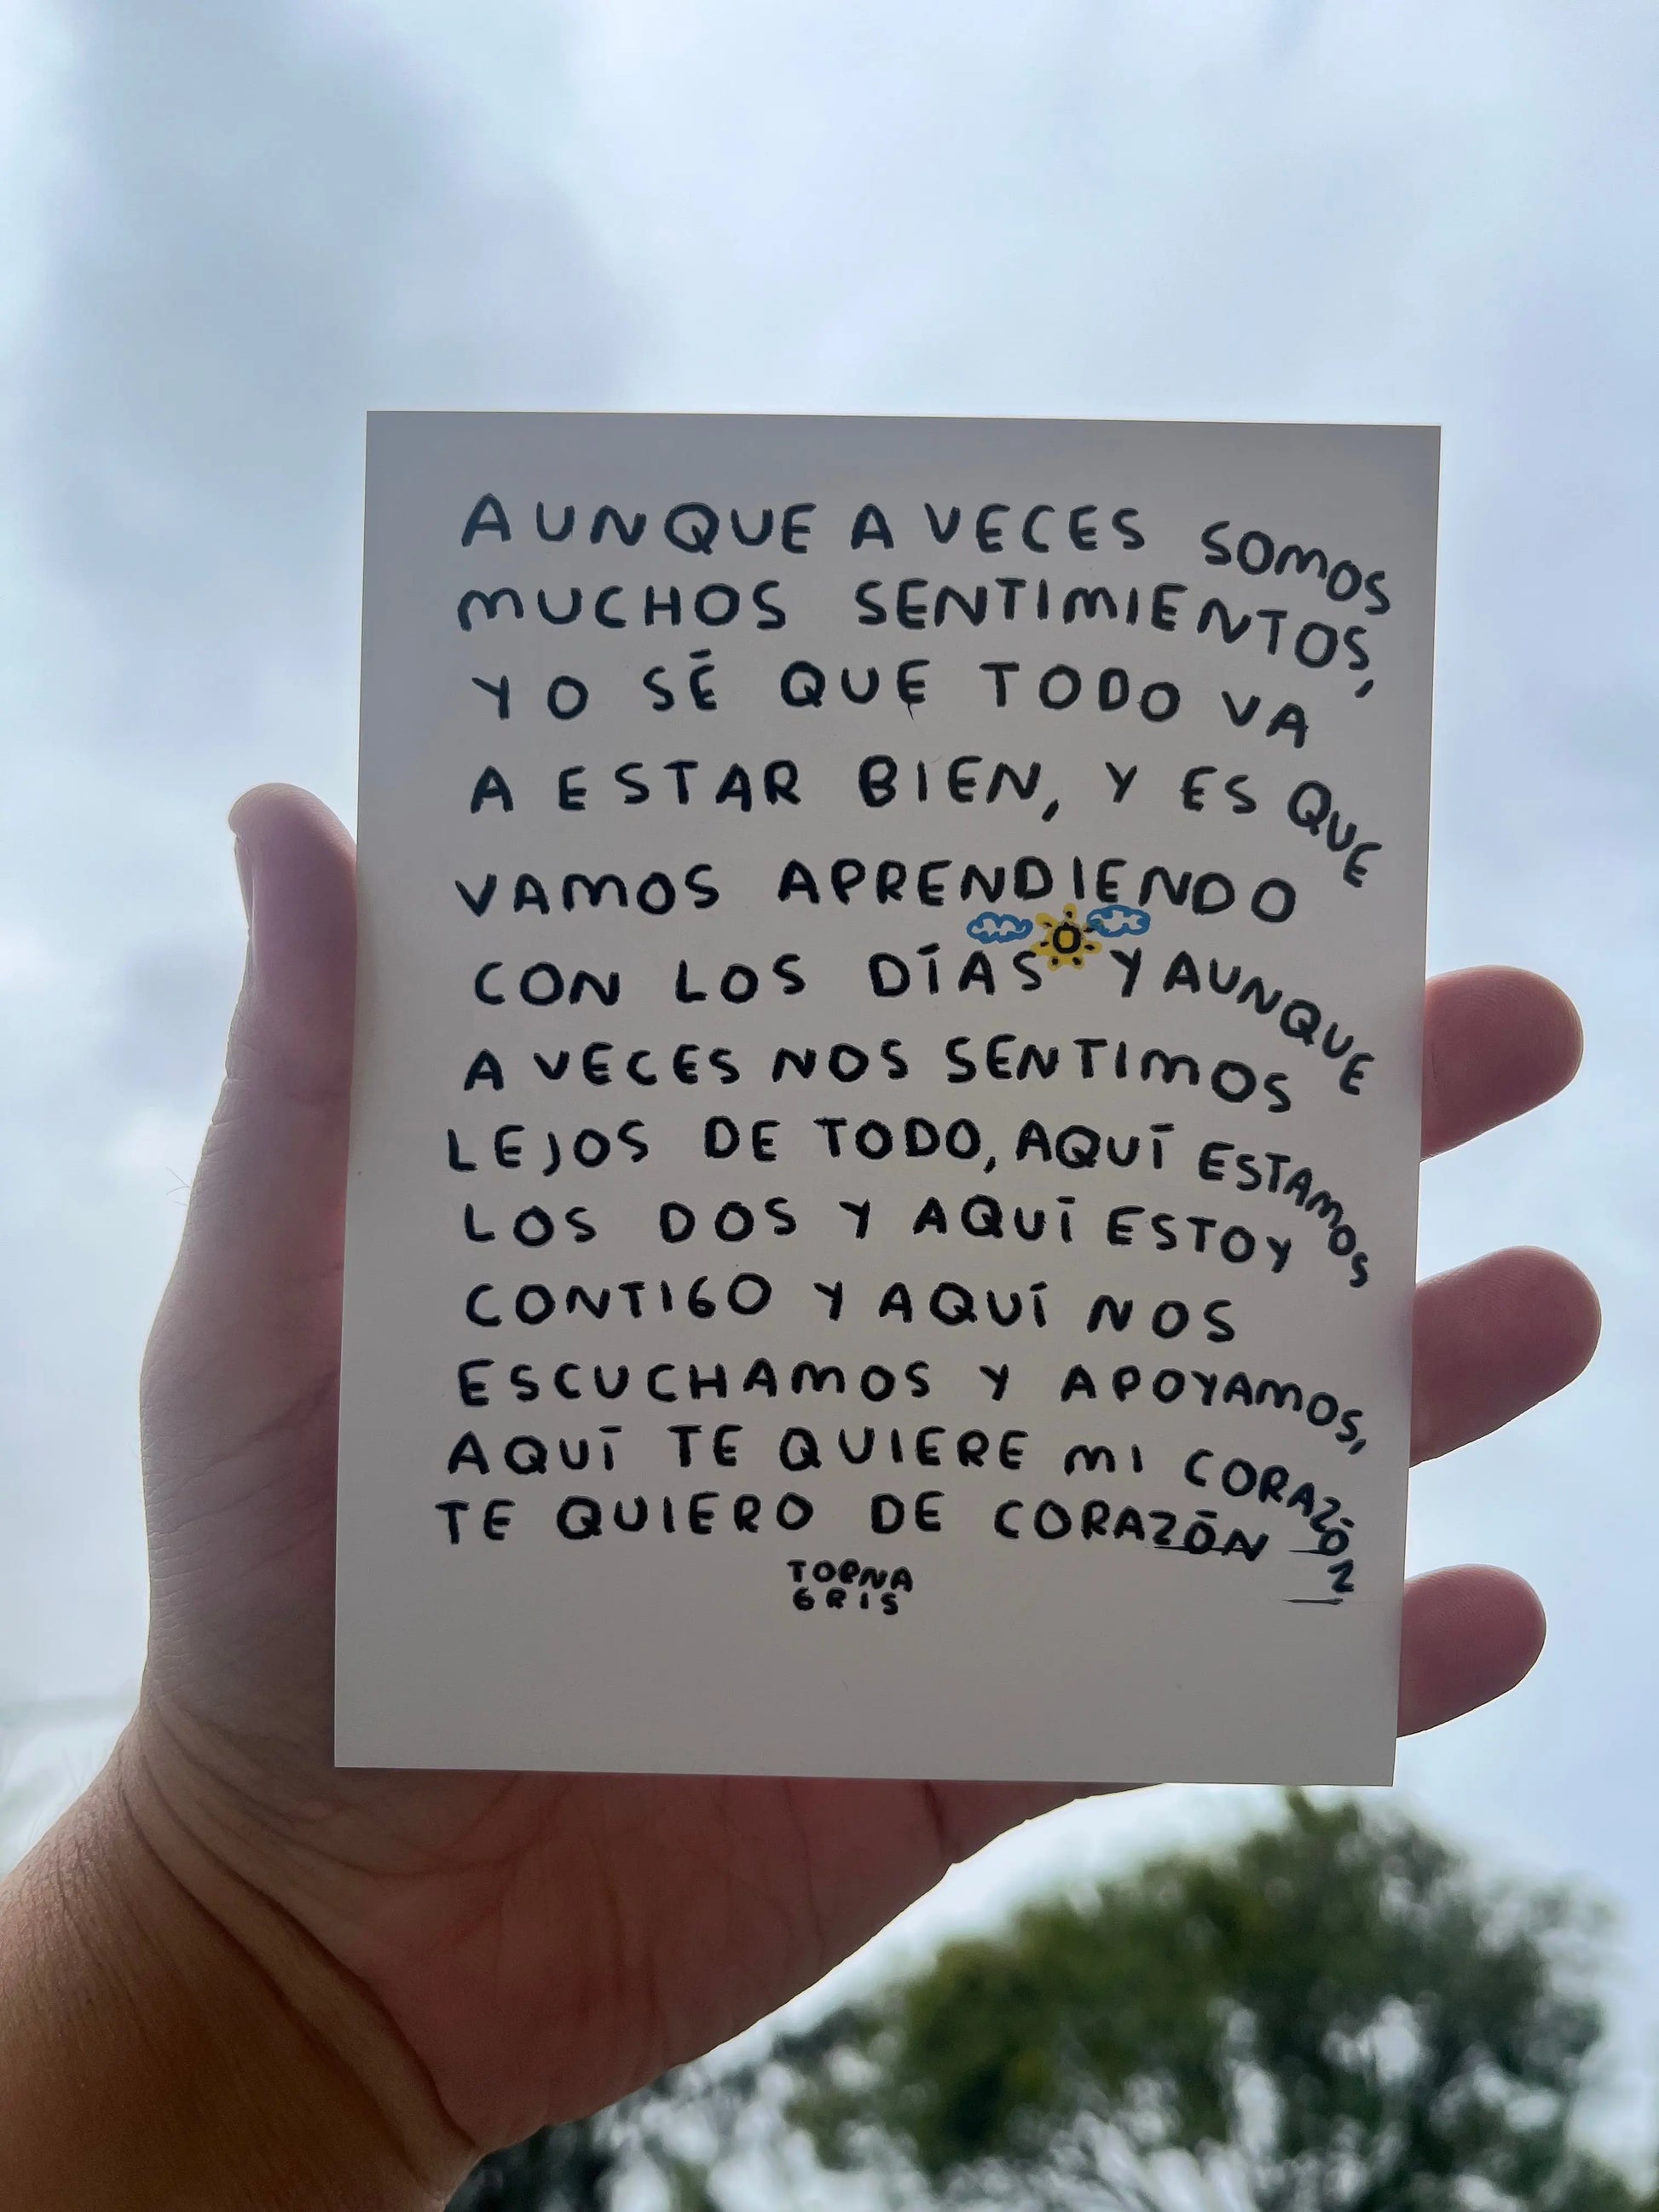 AUNQUE A VECES SOMOS
MUCHOS SENTIMIENTOS,
YO SÉ QUE TODO VA
A ESTAR BIEN, Y ES QUE
VAMOS APRENDIENDO
CON LOS DÍAS Y AUNQUE
A VECES NOS SENTIMOS
LEJOS DE TODO, AQUÍ ESTAMOS
LOS DOS Y AQUÍ ESTOY
CONTIGO Y AQUÍ NOS
ESCUCHAMOS Y APOYAMOS,
AQUÍ TE QUIERE MI CORAZÓN
TE QUIERO DE CORAZÓN
TORNA
GRIS